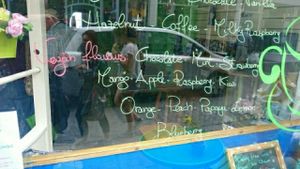 Chocolate Vanilla
Hazelnut Coffee Milky Raspberry
Vegan flavours Chocolate - Mint - Strawberry
Mango - Apple - Raspberry - Kiwi
Orange - Peach - Papaya - Lemon
Blueberry